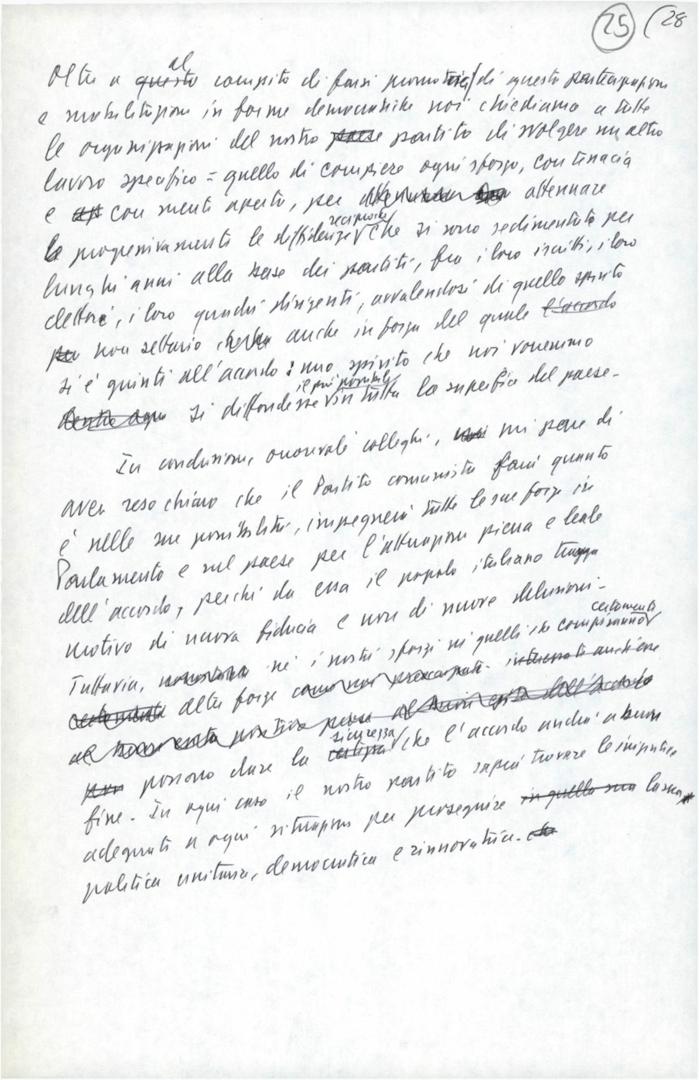 25 (28
Oltre a questo al compito di farsi promotrici di questa partecipazione
e mobilitazione in forme democratiche noi chiediamo a tutte
le organizzazioni del nostro paese partito di svolgere un altro
lavoro specifico = quello di compiere ogni sforzo, con tenacia
e con mente aperta, per attenuare
le progressivamente le diffidenze reciproche che si sono sedimentate per
lunghi anni alla base dei partiti, fra i loro iscritti, i loro
elettori, i loro quadri dirigenti, avvalendosi di quello spirito
non settario anche in forza del quale l'accordo
si è giunti all'accordo: uno spirito che noi vorremmo
si diffondesse il più possibile in tutta la superficie del paese.
In conclusione, onorevoli colleghi, mi pare di
aver reso chiaro che il Partito comunista farà quanto
è nelle sue possibilità, impegnerà tutte le sue forze in
Parlamento e nel paese per l'attuazione piena e leale
dell'accordo, perché da essa il popolo italiano tragga
motivo di nuova fiducia e non di nuove delusioni.
Tuttavia, né i nostri sforzi né quelli che compiranno certamente
certamente altre forze come noi preoccupate interessate anch'esse
al buon esito dell'accordo
possono dare la certezza sicurezza che l'accordo andrà a buon
fine. In ogni caso il nostro partito saprà trovare le iniziative
adeguate a ogni situazione per perseguire in quella sua la sua
politica unitaria, democratica e rinnovatrice.